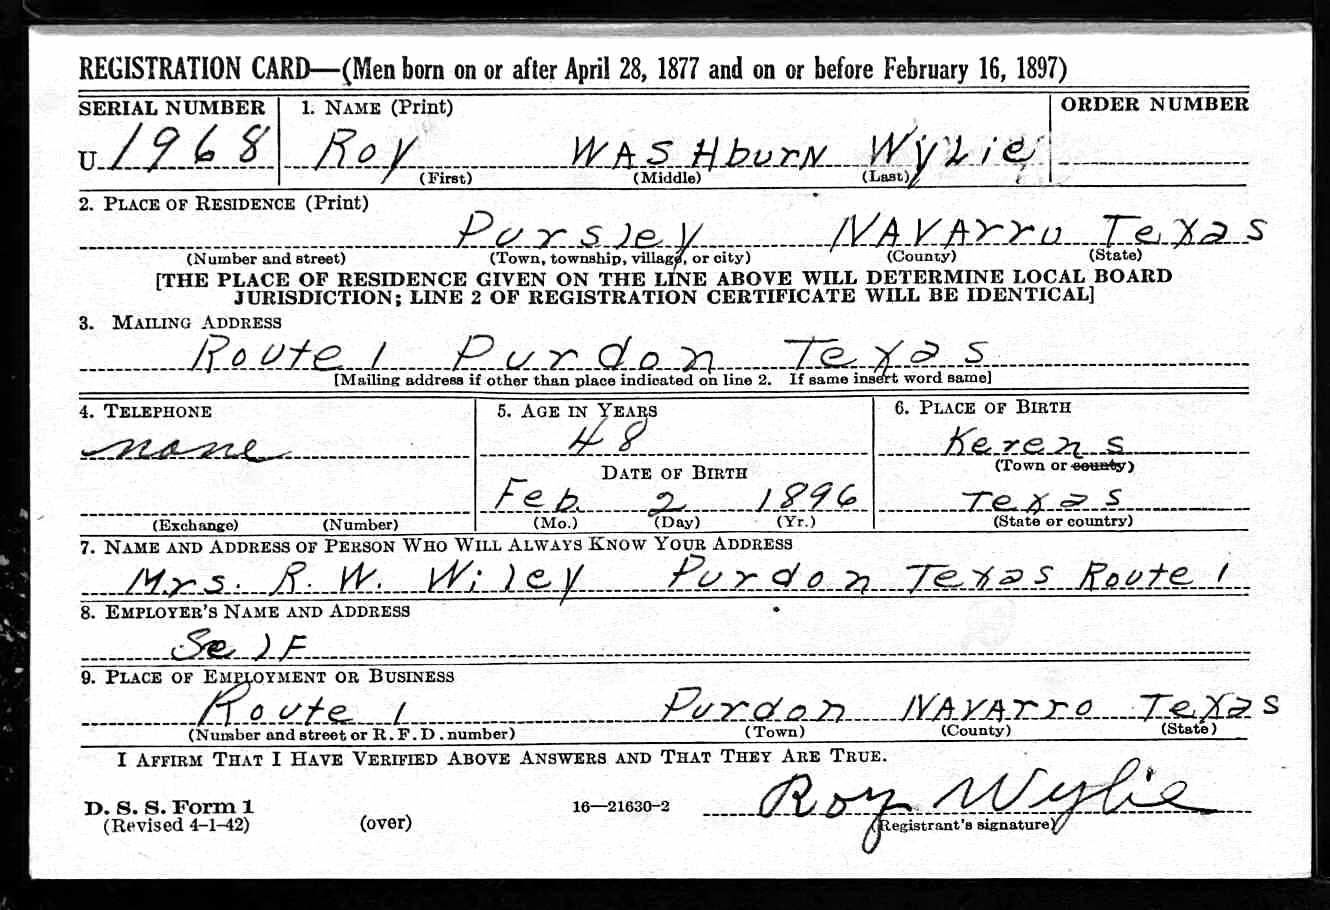 REGISTRATION CARD—(Men born on or after April 28, 1877 and on or before February 16, 1897)
SERIAL NUMBER 1. NAME (Print) ORDER NUMBER
U 1968 Roy WASHburN Wylie
(First) (Middle) (Last)
2. PLACE OF RESIDENCE (Print)
Pursley NAVArro Texas
(Number and street) (Town, township, village, or city) (County) (State)
[THE PLACE OF RESIDENCE GIVEN ON THE LINE ABOVE WILL DETERMINE LOCAL BOARD
JURISDICTION; LINE 2 OF REGISTRATION CERTIFICATE WILL BE IDENTICAL]
3. MAILING ADDRESS
Route 1 Purdon Texas
[Mailing address if other than place indicated on line 2. If same insert word same]
4. TELEPHONE 5. AGE IN YEARS 6. PLACE OF BIRTH
none 48 Kerens
DATE OF BIRTH (Town or county)
Feb. 2 1896 Texas
(Exchange) (Number) (Mo.) (Day) (Yr.) (State or country)
7. NAME AND ADDRESS OF PERSON WHO WILL ALWAYS KNOW YOUR ADDRESS
Mrs. R. W. Wiley Purdon Texas Route 1
8. EMPLOYER'S NAME AND ADDRESS
SelF
9. PLACE OF EMPLOYMENT OR BUSINESS
Route 1 Purdon NAVArro Texas
(Number and street or R. F. D. number) (Town) (County) (State)
I AFFIRM THAT I HAVE VERIFIED ABOVE ANSWERS AND THAT THEY ARE TRUE.
D. S. S. Form 1 16—21630-2 Roy Wylie
(Revised 4-1-42) (over) (Registrant's signature)